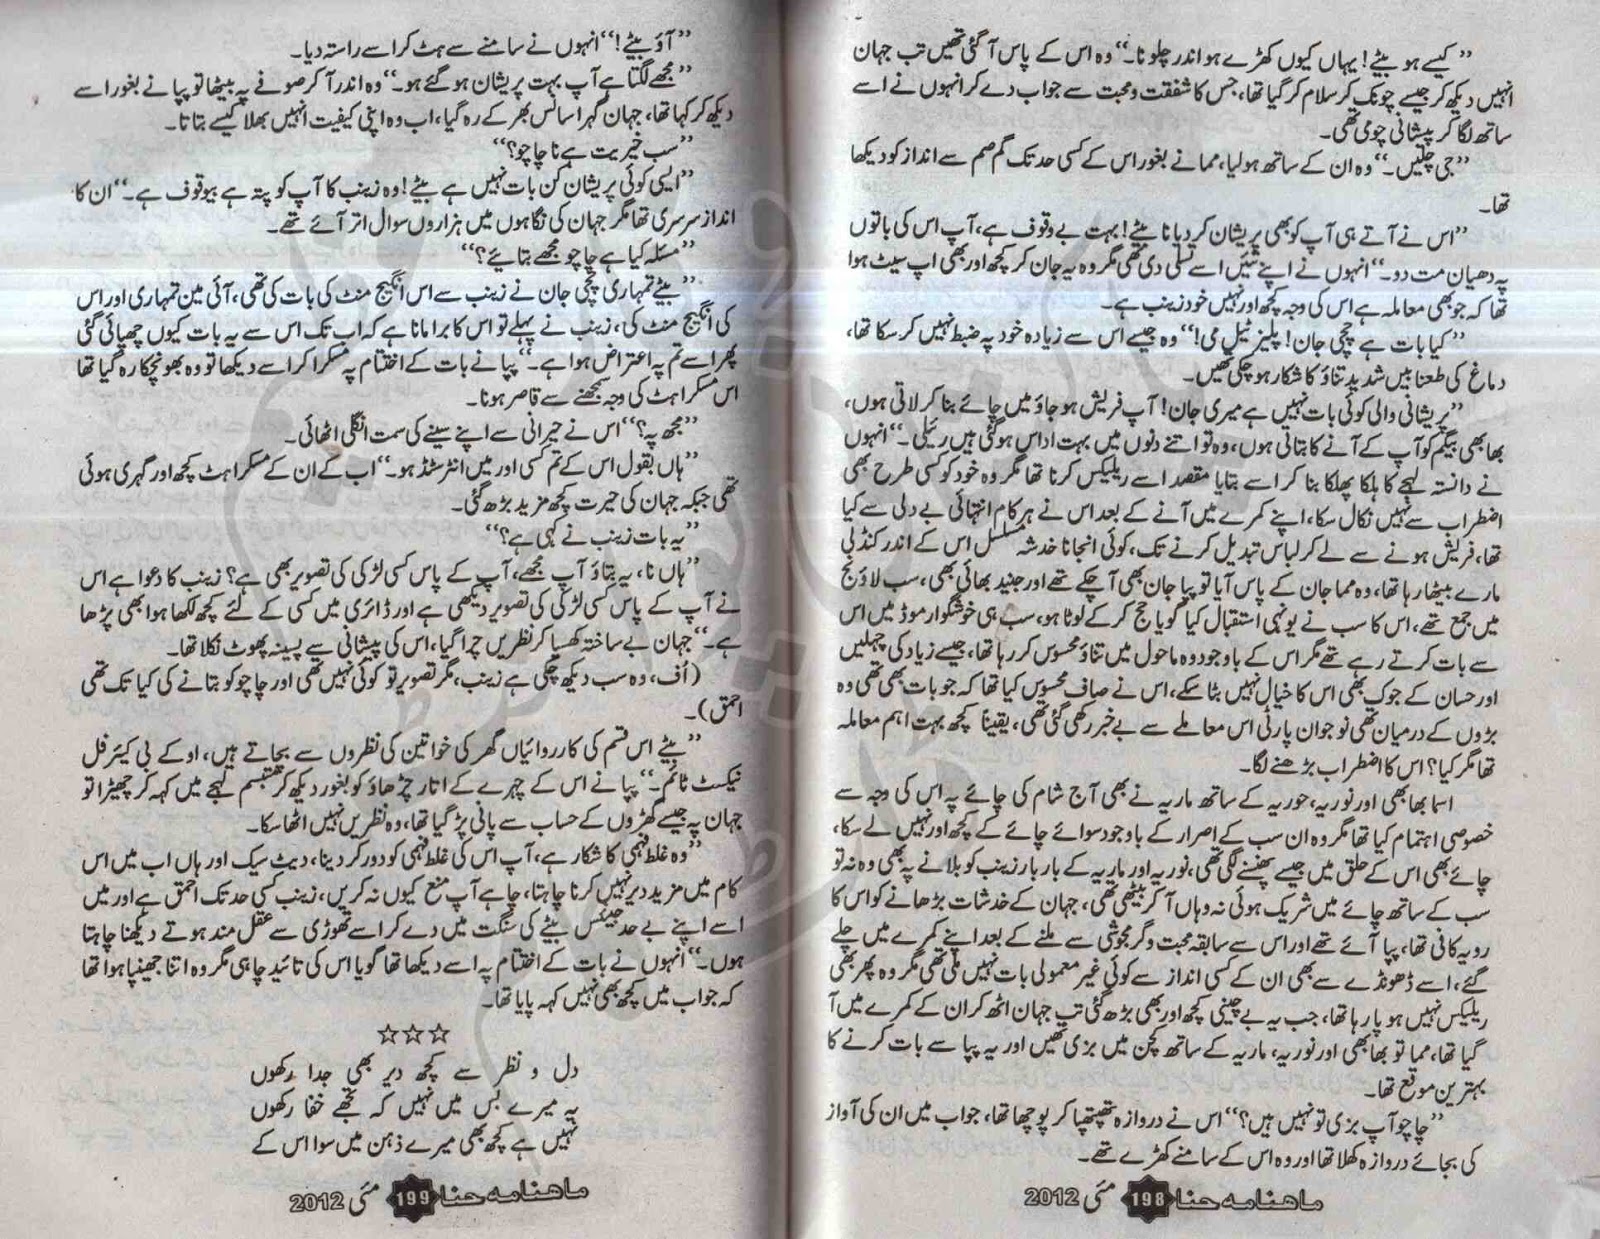 ”کیسے ہو بیٹے! یہاں کیوں کھڑے ہو اندر چلو نا۔“ وہ اس کے پاس آ گئی تھیں تب جہان
انہیں دیکھ کر جیسے چونک کر سلام کر گیا تھا، جس کا شفقت و محبت سے جواب دے کر انہوں نے اسے
ساتھ لگا کر پیشانی چومی تھی۔
”جی چلیں۔“ وہ ان کے ساتھ ہو لیا، ممانے بغور اس کے کسی حد تک گم صم سے انداز کو دیکھا
تھا۔
”اس نے آتے ہی آپ کو بھی پریشان کر دیا نا بیٹے! بہت بے وقوف ہے، آپ اس کی باتوں
پہ دھیان مت دو۔“ انہوں نے اپنے تئیں اسے تسلی دی تھی مگر وہ یہ جان کر کچھ اور بھی اپ سیٹ ہوا
تھا کہ جو بھی معاملہ ہے اس کی وجہ کچھ اور نہیں خود زینب ہے۔
”کیا بات ہے چچی جان! پلیز ٹیل می!“ وہ جیسے اس سے زیادہ خود پہ ضبط نہیں کر سکا تھا،
دماغ کی طعنابیں شدید تناؤ کا شکار ہو چکی تھیں۔
”پریشانی والی کوئی بات نہیں ہے میری جان! آپ فریش ہو جاؤ میں چائے بنا کر لاتی ہوں،
بھابھی بیگم کو آپ کے آنے کا بتاتی ہوں، وہ تو اتنے دنوں میں بہت اداس ہو گئی ہیں رئیلی۔“ انہوں
نے دانستہ لہجے کا ہلکا پھلکا بنا کر اسے بتایا مقصد اسے ریلیکس کرنا تھا مگر وہ خود کو کسی طرح بھی
اضطراب سے نہیں نکال سکا، اپنے کمرے میں آنے کے بعد اس نے ہر کام انتہائی بے دلی سے کیا
تھا، فریش ہونے سے لے کر لباس تبدیل کرنے تک، کوئی انجانا خدشہ مسلسل اس کے اندر کنڈلی
مارے بیٹھا رہا تھا، وہ مما جان کے پاس آیا تو پپا جان بھی آ چکے تھے اور جنید بھائی بھی، سب لاؤنج
میں جمع تھے، اس کا سب نے یونہی استقبال کیا گویا حج کر کے لوٹا ہو، سب ہی خوشگوار موڈ میں اس
سے بات کرتے رہے تھے مگر اس کے باوجود وہ ماحول میں تناؤ محسوس کر رہا تھا، جیسے زیاد کی چہلیں
اور حسان کے جوک بھی اس کا خیال نہیں بٹا سکے، اس نے صاف محسوس کیا تھا کہ جو بات بھی تھی وہ
بڑوں کے درمیان تھی نوجوان پارٹی اس معاملے سے بے خبر رکھی گئی تھی، یقیناً کچھ بہت اہم معاملہ
تھا مگر کیا؟ اس کا اضطراب بڑھنے لگا۔
اسما بھابھی اور نوریہ، حوریہ کے ساتھ ماریہ نے بھی آج شام کی چائے پہ اس کی وجہ سے
خصوصی اہتمام کیا تھا مگر وہ ان سب کے اصرار کے باوجود سوائے چائے کے کچھ اور نہیں لے سکا،
چائے بھی اس کے حلق میں جیسے پھنسنے لگی تھی، نوریہ اور ماریہ کے بار بار زینب کو بلانے پہ بھی وہ نہ تو
سب کے ساتھ چائے میں شریک ہوئی نہ وہاں آ کر بیٹھی تھی، جہان کے خدشات بڑھانے کو اس کا
رویہ کافی تھا، پپا آئے تھے اور اس سے سابقہ محبت و گرمجوشی سے ملنے کے بعد اپنے کمرے میں چلے
گئے، اسے ڈھونڈے سے بھی ان کے کسی انداز سے کوئی غیر معمولی بات نہیں ملی تھی مگر وہ پھر بھی
ریلیکس نہیں ہو پا رہا تھا، جب یہ بے چینی کچھ اور بھی بڑھ گئی تب جہان اٹھ کر ان کے کمرے میں آ
گیا تھا، مما تو بھابھی اور نوریہ، ماریہ کے ساتھ کچن میں بزی تھیں اور یہ پپا سے بات کرنے کا
بہترین موقع تھا۔
”چاچو آپ بزی تو نہیں ہیں؟“ اس نے دروازہ تھپتھپا کر پوچھا تھا، جواب میں ان کی آواز
کی بجائے دروازہ کھلا تھا اور وہ اس کے سامنے کھڑے تھے۔
ماهنامه حنا 198 مئی 2012
”آؤ بیٹے!“ انہوں نے سامنے سے ہٹ کر اسے راستہ دیا۔
”مجھے لگتا ہے آپ بہت پریشان ہو گئے ہو۔“ وہ اندر آ کر صوفے پہ بیٹھا تو پپا نے بغور اسے
دیکھ کر کہا تھا، جہان گہرا سانس بھر کے رہ گیا، اب وہ اپنی کیفیت انہیں بھلا کیسے بتاتا۔
”سب خیریت ہے نا چاچو؟“
”ایسی کوئی پریشان کن بات نہیں ہے بیٹے! وہ زینب کا آپ کو پتہ ہے بیوقوف ہے۔“ ان کا
انداز سرسری تھا مگر جہان کی نگاہوں میں ہزاروں سوال اتر آئے تھے۔
”مسئلہ کیا ہے چاچو مجھے بتائیے؟“
”بیٹے تمہاری چچی جان نے زینب سے اس انگیج منٹ کی بات کی تھی، آئی مین تمہاری اور اس
کی انگیج منٹ کی، زینب نے پہلے تو اس کا برا مانا ہے کہ اب تک اس سے یہ بات کیوں چھپائی گئی
پھر اسے تم پہ اعتراض ہوا ہے۔“ پپا نے بات کے اختتام پہ مسکرا کر اسے دیکھا تو وہ بھونچکا رہ گیا تھا
اس مسکراہٹ کی وجہ سمجھنے سے قاصر ہونا۔
”مجھ پہ؟“ اس نے حیرانی سے اپنے سینے کی سمت انگلی اٹھائی۔
”ہاں بقول اس کے تم کسی اور میں انٹرسٹڈ ہو۔“ اب کے ان کے مسکراہٹ کچھ اور گہری ہوئی
تھی جبکہ جہان کی حیرت کچھ مزید بڑھ گئی۔
”یہ بات زینب نے کہی ہے؟“
”ہاں نا، یہ بتاؤ آپ مجھے، آپ کے پاس کسی لڑکی کی تصویر بھی ہے؟ زینب کا دعوا ہے اس
نے آپ کے پاس کسی لڑکی کی تصویر دیکھی ہے اور ڈائری میں کسی کے لئے کچھ لکھا ہوا بھی پڑھا
ہے۔“ جہان بے ساختہ کھسیا کر نظریں چرا گیا، اس کی پیشانی سے پسینہ پھوٹ نکلا تھا۔
(اُف، وہ سب دیکھ چکی ہے زینب، مگر تصویر تو کوئی نہیں تھی اور چاچو کو بتانے کی کیا تک تھی
احمق)۔
”بیٹے اس قسم کی کارروائیاں گھر کی خواتین کی نظروں سے بچاتے ہیں، اوکے بی کیئرفل
نیکسٹ ٹائم۔“ پپا نے اس کے چہرے کے اتار چڑھاؤ کو بغور دیکھ کر متبسم لہجے میں کہہ کر چھیڑا تو
جہان پہ جیسے گھڑوں کے حساب سے پانی پڑ گیا تھا، وہ نظریں نہیں اٹھا سکا۔
”وہ غلط فہمی کا شکار ہے، آپ اس کی غلط فہمی کو دور کر دینا، دیٹ سیک اور ہاں اب میں اس
کام میں مزید دیر نہیں کرنا چاہتا، چاہے آپ منع کیوں نہ کریں، زینب کسی حد تک احمق ہے اور میں
اسے اپنے بے حد جینئس بیٹے کی سنگت میں دے کر اسے تھوڑی سے عقل مند ہوتے دیکھنا چاہتا
ہوں۔“ انہوں نے بات کے اختتام پہ اسے دیکھا تھا گویا اس کی تائید چاہی مگر وہ اتنا جھینپا ہوا تھا
کہ جواب میں کچھ بھی نہیں کہہ پایا تھا۔
☆☆☆
دل و نظر سے کچھ دیر بھی جدا رکھوں
یہ میرے بس میں نہیں کہ تجھے خفا رکھوں
نہیں ہے کچھ بھی میرے ذہن میں سوا اس کے
ماهنامه حنا 199 مئی 2012